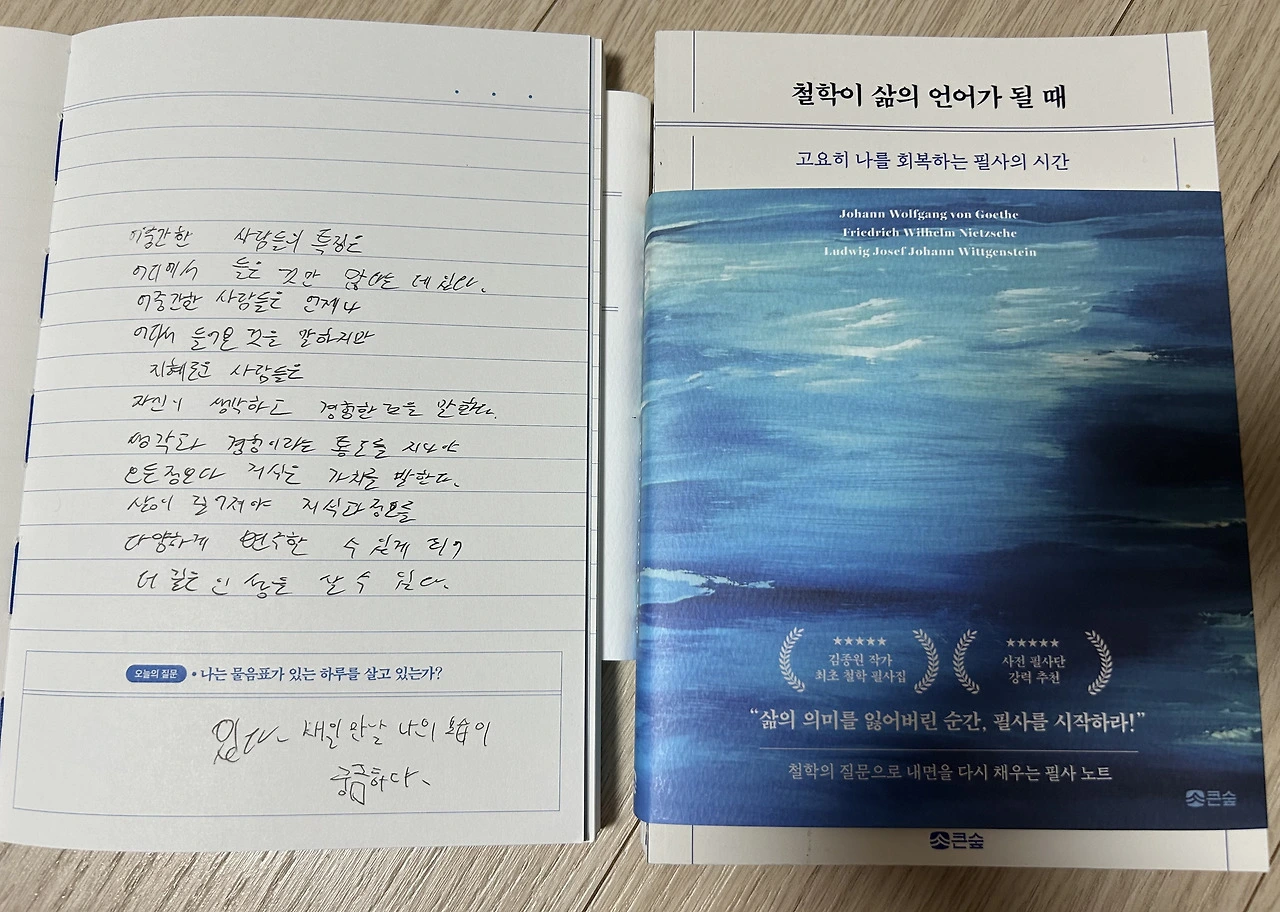 어중간한 사람들의 특징은
어디에서 들은 것만 많다는 데 있다.
어중간한 사람들은 언제나
어디서 들어온 것을 말하지만
지혜로운 사람들은
자신이 생각하고 경험한 것을 말한다.
생각과 경험이라는 통로를 지나야
모든 정보와 지식은 가치를 발한다.
삶이 깊어져야 지식과 정보를
다양하게 변주할 수 있게 되어
더 깊은 인생을 살 수 있다.
오늘의 질문 • 나는 물음표가 있는 하루를 살고 있는가?
있다. 매일 만날 나의 모습이
궁금하다.
철학이 삶의 언어가 될 때
고요히 나를 회복하는 필사의 시간
Johann Wolfgang von Goethe
Friedrich Wilhelm Nietzsche
Ludwig Josef Johann Wittgenstein
★★★★★
김종원 작가
최초 철학 필사집
★★★★★
사전 필사단
강력 추천
“삶의 의미를 잃어버린 순간, 필사를 시작하라!”
철학의 질문으로 내면을 다시 채우는 필사 노트
큰숲
큰숲